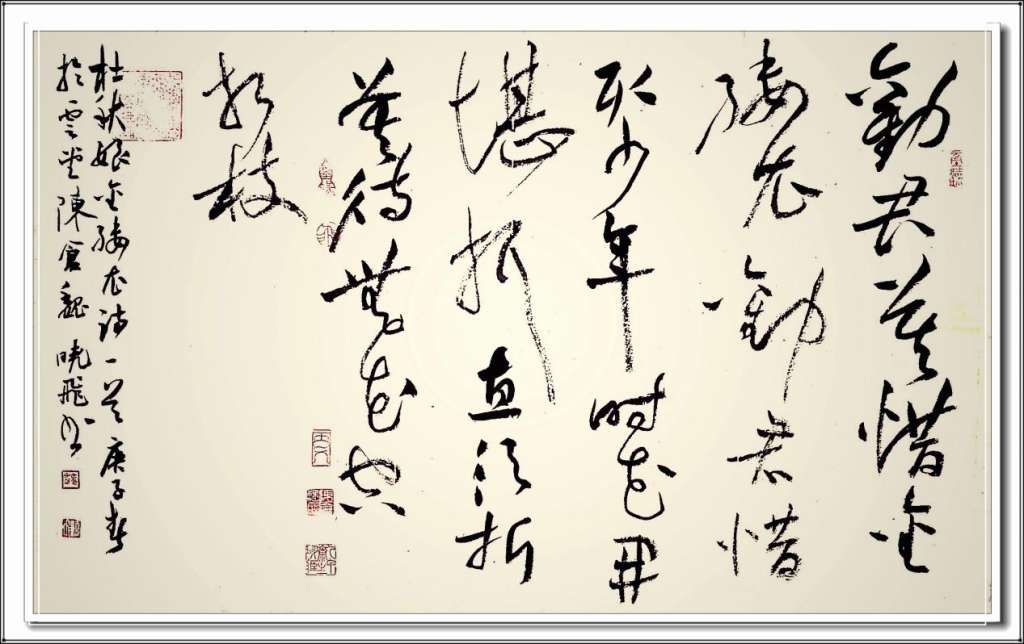 勸君莫惜金
縷衣勸君惜
取少年時花開
堪折直須折
莫待無花空
折枝
杜秋娘金縷衣詩一首庚子春
於雲堂陳倉魏曉飛書